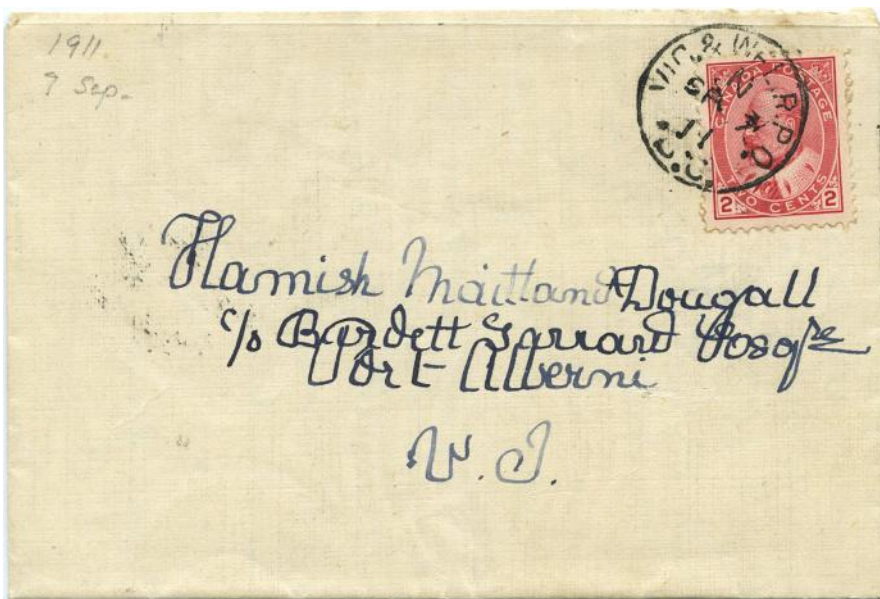 1911
9 Sep.
VIC. & R.P.O.
B.C.
CANADA POSTAGE
2 TWO CENTS 2
Hamish Maitland Dougall
c/o Burdett Garrard Esqre
Port Alberni
V.I.